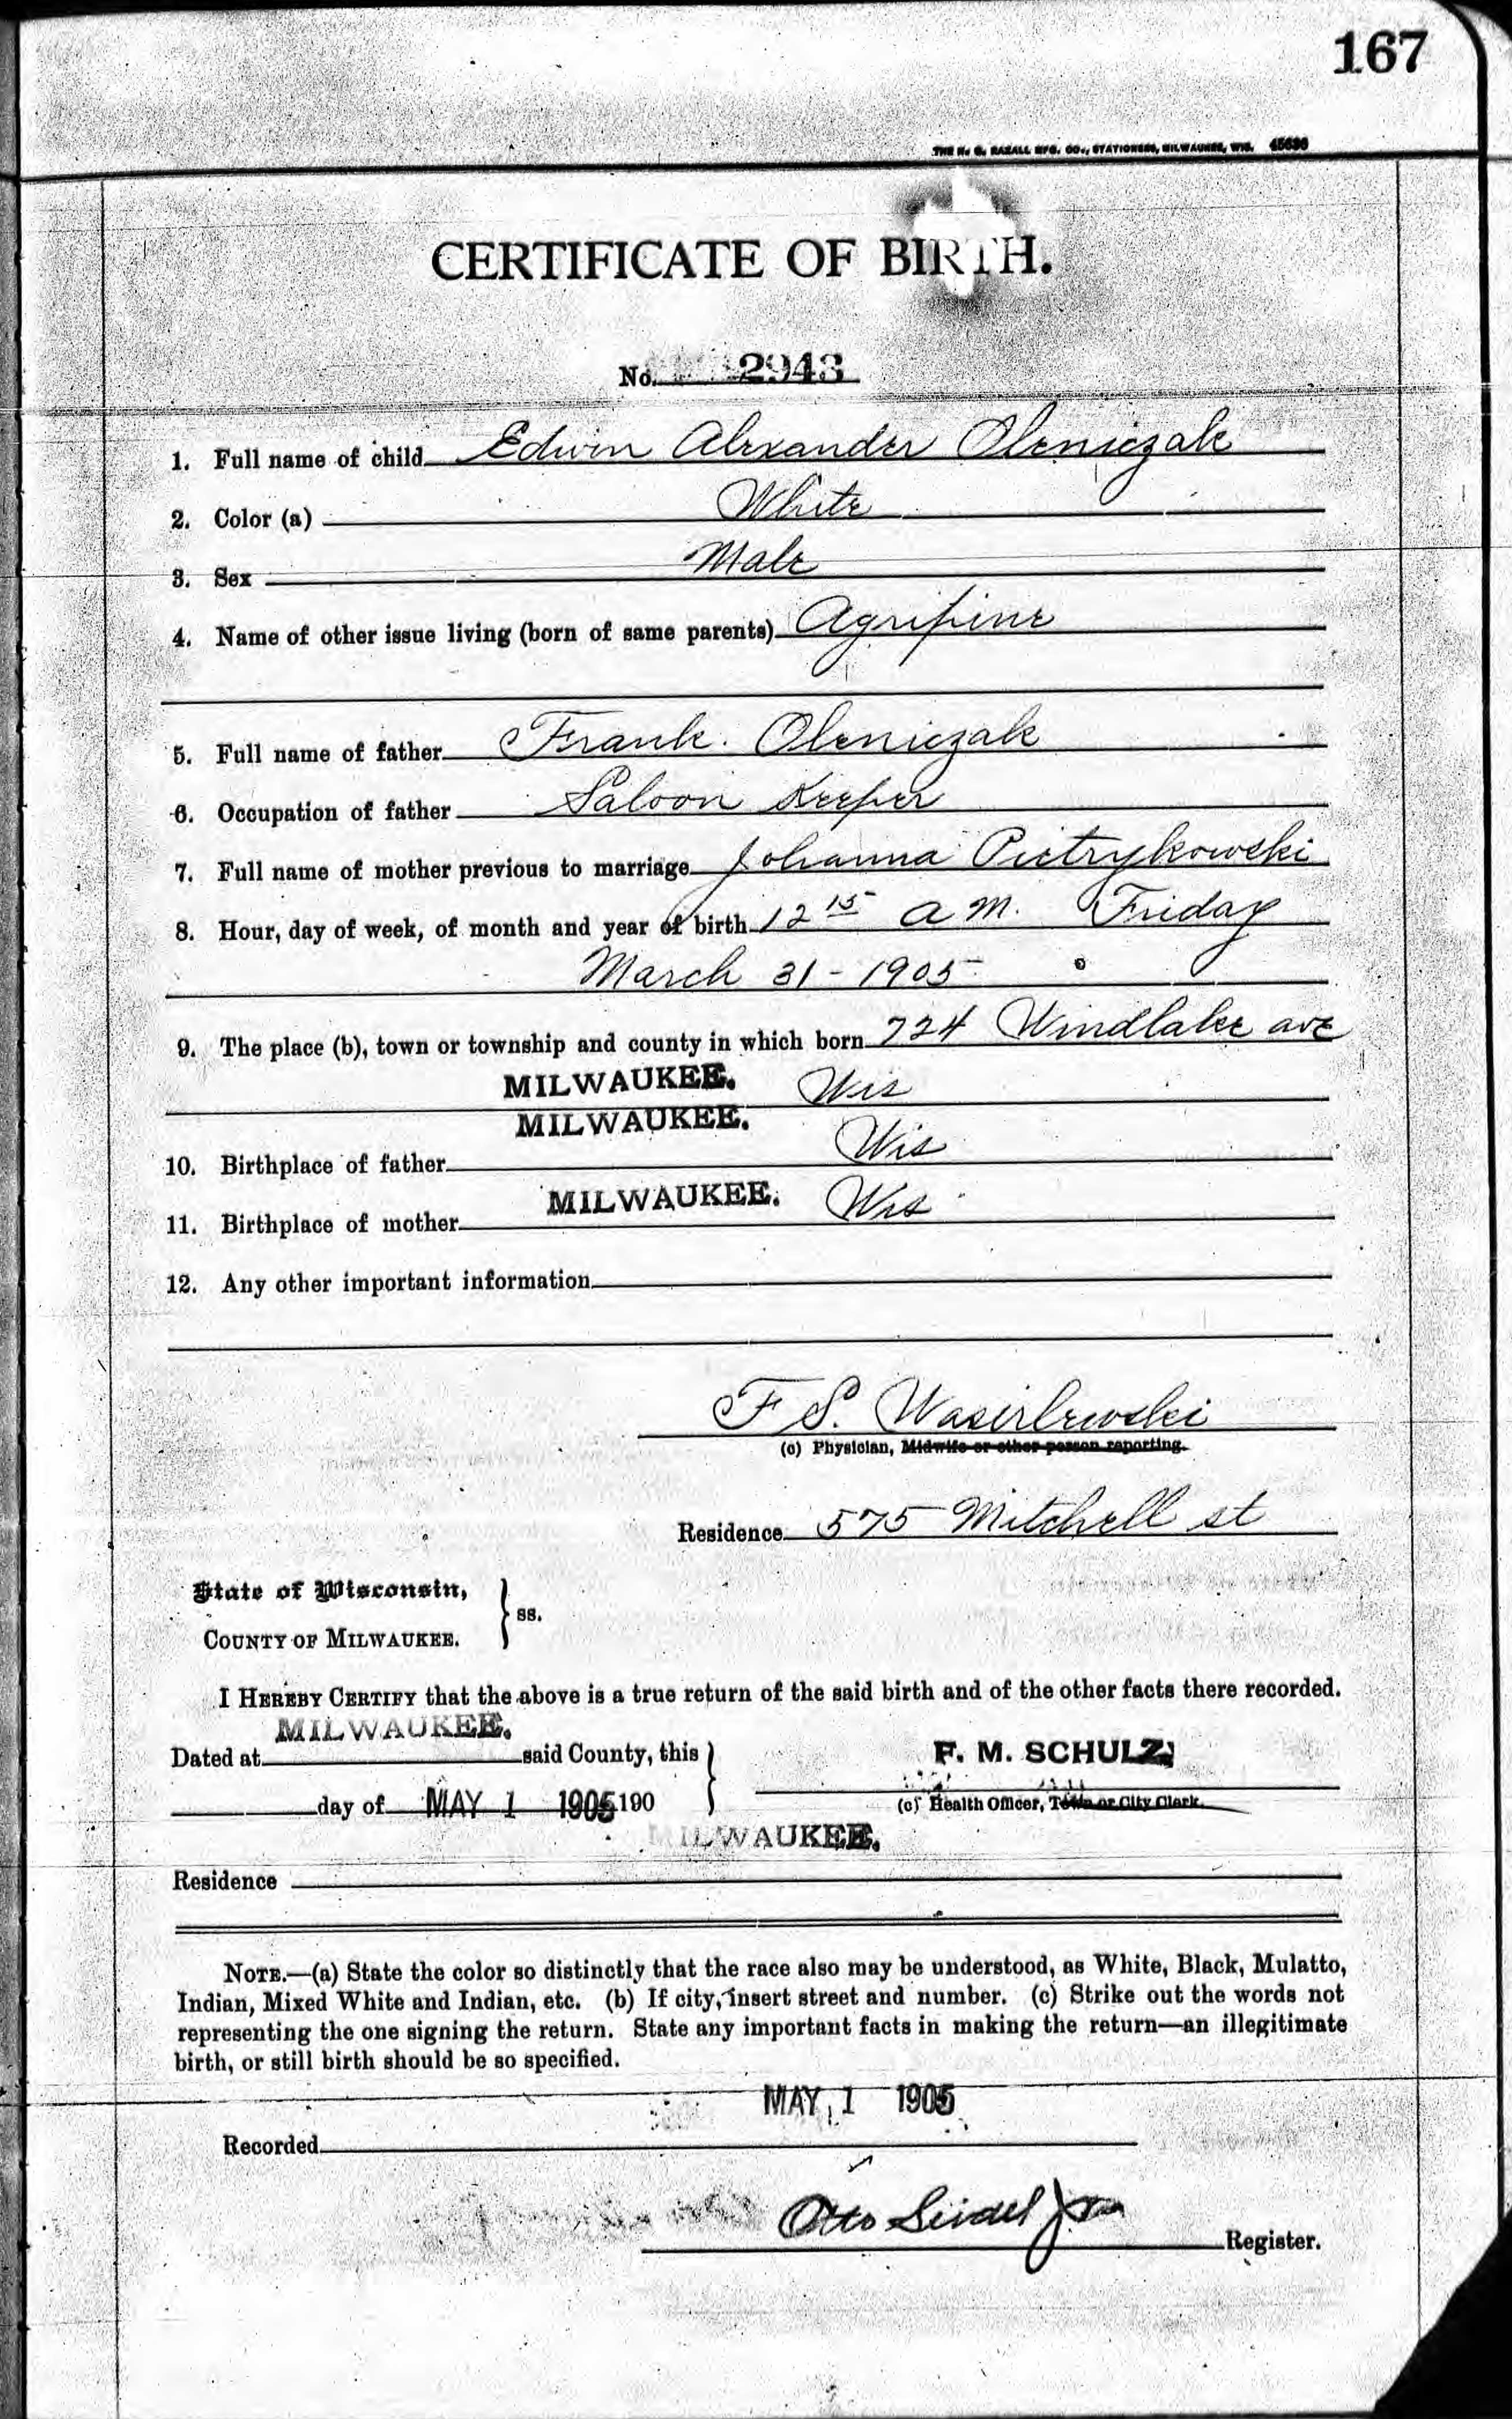 167
THE H. G. RAZALL MFG. CO., STATIONERS, MILWAUKEE, WIS. 45636
CERTIFICATE OF BIRTH.
No. 2943
1. Full name of child Edwin Alexander Oleniczak
2. Color (a) White
3. Sex Male
4. Name of other issue living (born of same parents) Agrifine
5. Full name of father Frank. Oleniczak
6. Occupation of father Saloon Keeper
7. Full name of mother previous to marriage Johanna Pietrykowski
8. Hour, day of week, of month and year of birth 12 15 a M. Friday
March 31 - 1905
9. The place (b), town or township and county in which born 724 Windlake ave
MILWAUKEE. Wis
MILWAUKEE. Wis
10. Birthplace of father
11. Birthplace of mother MILWAUKEE. Wis
12. Any other important information
F S. Wasielewski
(c) Physician, Midwife or other person reporting.
Residence 575 Mitchell st
State of Wisconsin,
COUNTY OF MILWAUKEE. } ss.
I HEREBY CERTIFY that the above is a true return of the said birth and of the other facts there recorded.
MILWAUKEE.
Dated at said County, this
F. M. SCHULZ,
day of MAY 1 1905 190
(c) Health Officer, Town or City Clerk.
MILWAUKEE.
Residence
NOTE.—(a) State the color so distinctly that the race also may be understood, as White, Black, Mulatto,
Indian, Mixed White and Indian, etc. (b) If city, insert street and number. (c) Strike out the words not
representing the one signing the return. State any important facts in making the return—an illegitimate
birth, or still birth should be so specified.
MAY 1 1905
Recorded
Otto Seidel Jr
Register.